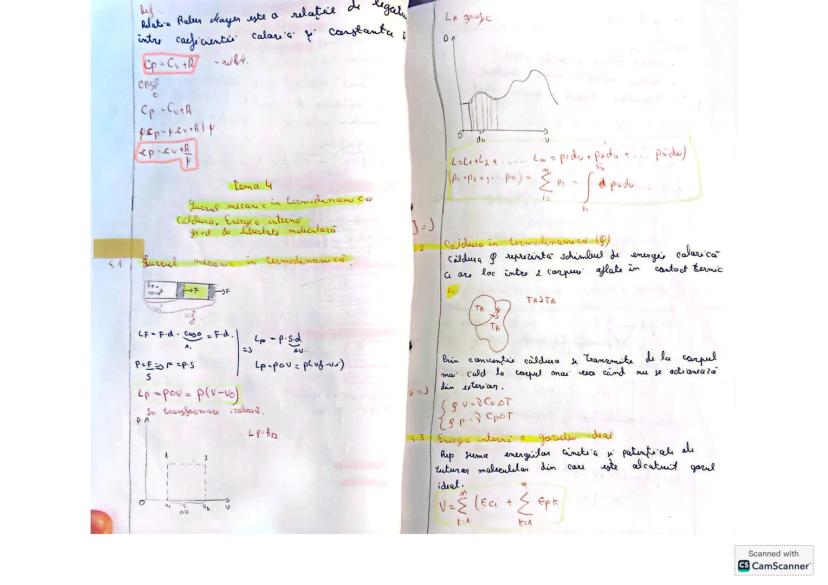 Def.
Relatia Robert Mayer este o relație de legatu
între coeficientii calorici și constanta
Cp = Cv+R
Cp = Cv+R
μcp = μcv+R | μ
cp = cv + R/μ
Tema 4
Lucrul mecanic în termodinamica
Caldura, Energia interna
grad de libertate moleculară
4.1 Lucrul mecanic în termodinamică.
F → F
LF = F·d · cosα = F·d.
P = F/S => F = P·S
=> Lp = p·S·d
ΔV
Lp = pΔV = p(Vf - Vi)
Lp = pΔV = p(V-V0)
În transformare izobară.
P
1 2
O V1 ΔV V2 V
La grafic
P
O dv V
L = L1+L2 + ...... Ln = p1dv + p2dv + ... pndv)
(p1+p2+... pn) = Σ pi = ∫ pdv
J = J
.2 Caldura în termodinamică (Q)
Căldura Q reprezintă schimbul de energie calorică
ce are loc intre 2 corpuri aflate în contact termic
Ex:
TA TB
Q
Prin convenție căldura se transmite de la corpul
mai cald la corpul mai rece când nu se acționează
din exterior.
Q V = ν Cv ΔT
Q p = ν Cp ΔT
4.3 Energia internă a gazului ideal
Rep suma energiilor cinetice și potențiale ale
tuturor moleculelor din care este alcatuit gazul
ideal.
Scanned with
CS CamScanner